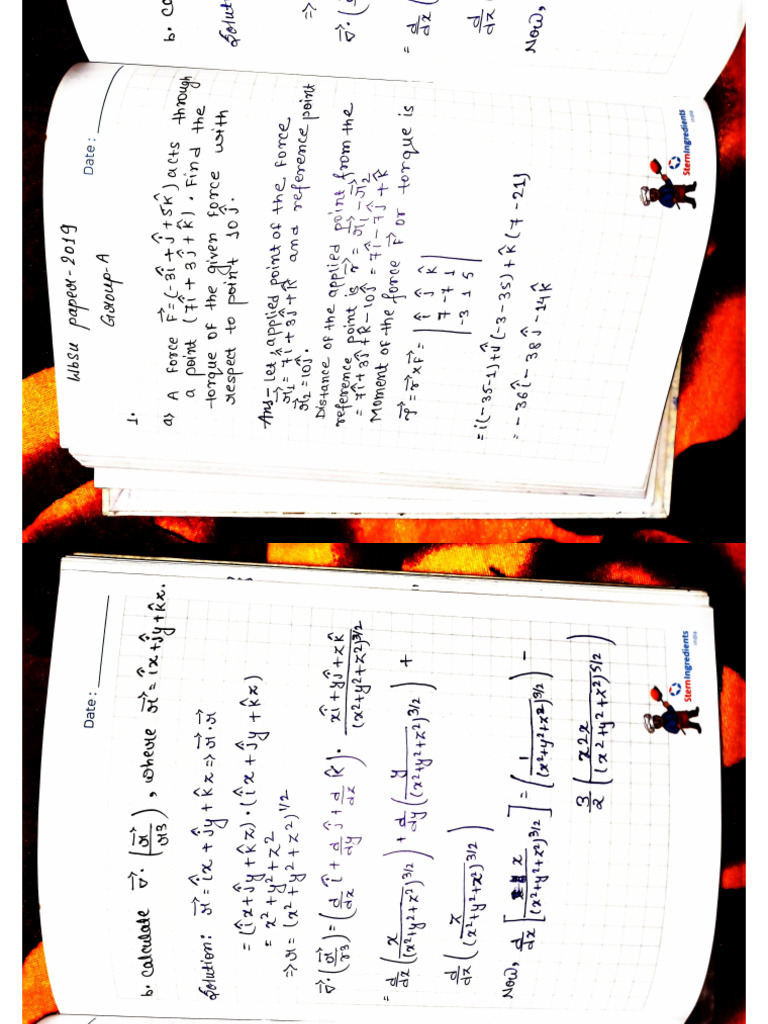 Date :
Wbsu paper-2019
Group-A
1.
a) A force F⃗=(-3î+ĵ+5k̂) acts through
a point (7î+3ĵ+k̂). Find the
torque of the given force with
respect to point 10ĵ.
Ans- Let, applied point of the force
r⃗₁=7î+3ĵ+k̂ and reference point
r⃗₂=10ĵ.
Distance of the applied point from the
reference point is r⃗ = r⃗₁-r⃗₂
= 7î+3ĵ+k̂-10ĵ = 7î-7ĵ+k̂
Moment of the force F⃗ or torque is
τ⃗ = r⃗×F⃗ = | î ĵ k̂ |
| 7 -7 1 |
| -3 1 5 |
= î(-35-1)+ĵ(-3-35)+k̂(7-21)
= -36î-38ĵ-14k̂
SternIngredients
India
b. Co
Solut
=>
∇⃗·(
= d/dx (
d/dx (
Now,
Date :
b. Calculate ∇⃗·(r⃗/r3), where r⃗=îx+ĵy+k̂z.
Solution: r⃗=îx+ĵy+k̂z => r⃗·r⃗
= (îx+ĵy+k̂z)·(îx+ĵy+k̂z)
= x²+y²+z²
=> r = (x²+y²+z²)^1/2
∇⃗·(r⃗/r3) = (d/dx î + d/dy ĵ + d/dx k̂) · (xî+yĵ+zk̂)/(x²+y²+z²)^3/2
= d/dx (x/(x²+y²+z²)^3/2) + d/dy (y/(x²+y²+z²)^3/2) +
d/dx (z/(x²+y²+z²)^3/2)
Now, d/dx [x/(x²+y²+z²)^3/2] = (1/(x²+y²+z²)^3/2) -
3/2 (x2x/(x²+y²+z²)^5/2)
SternIngredients
India